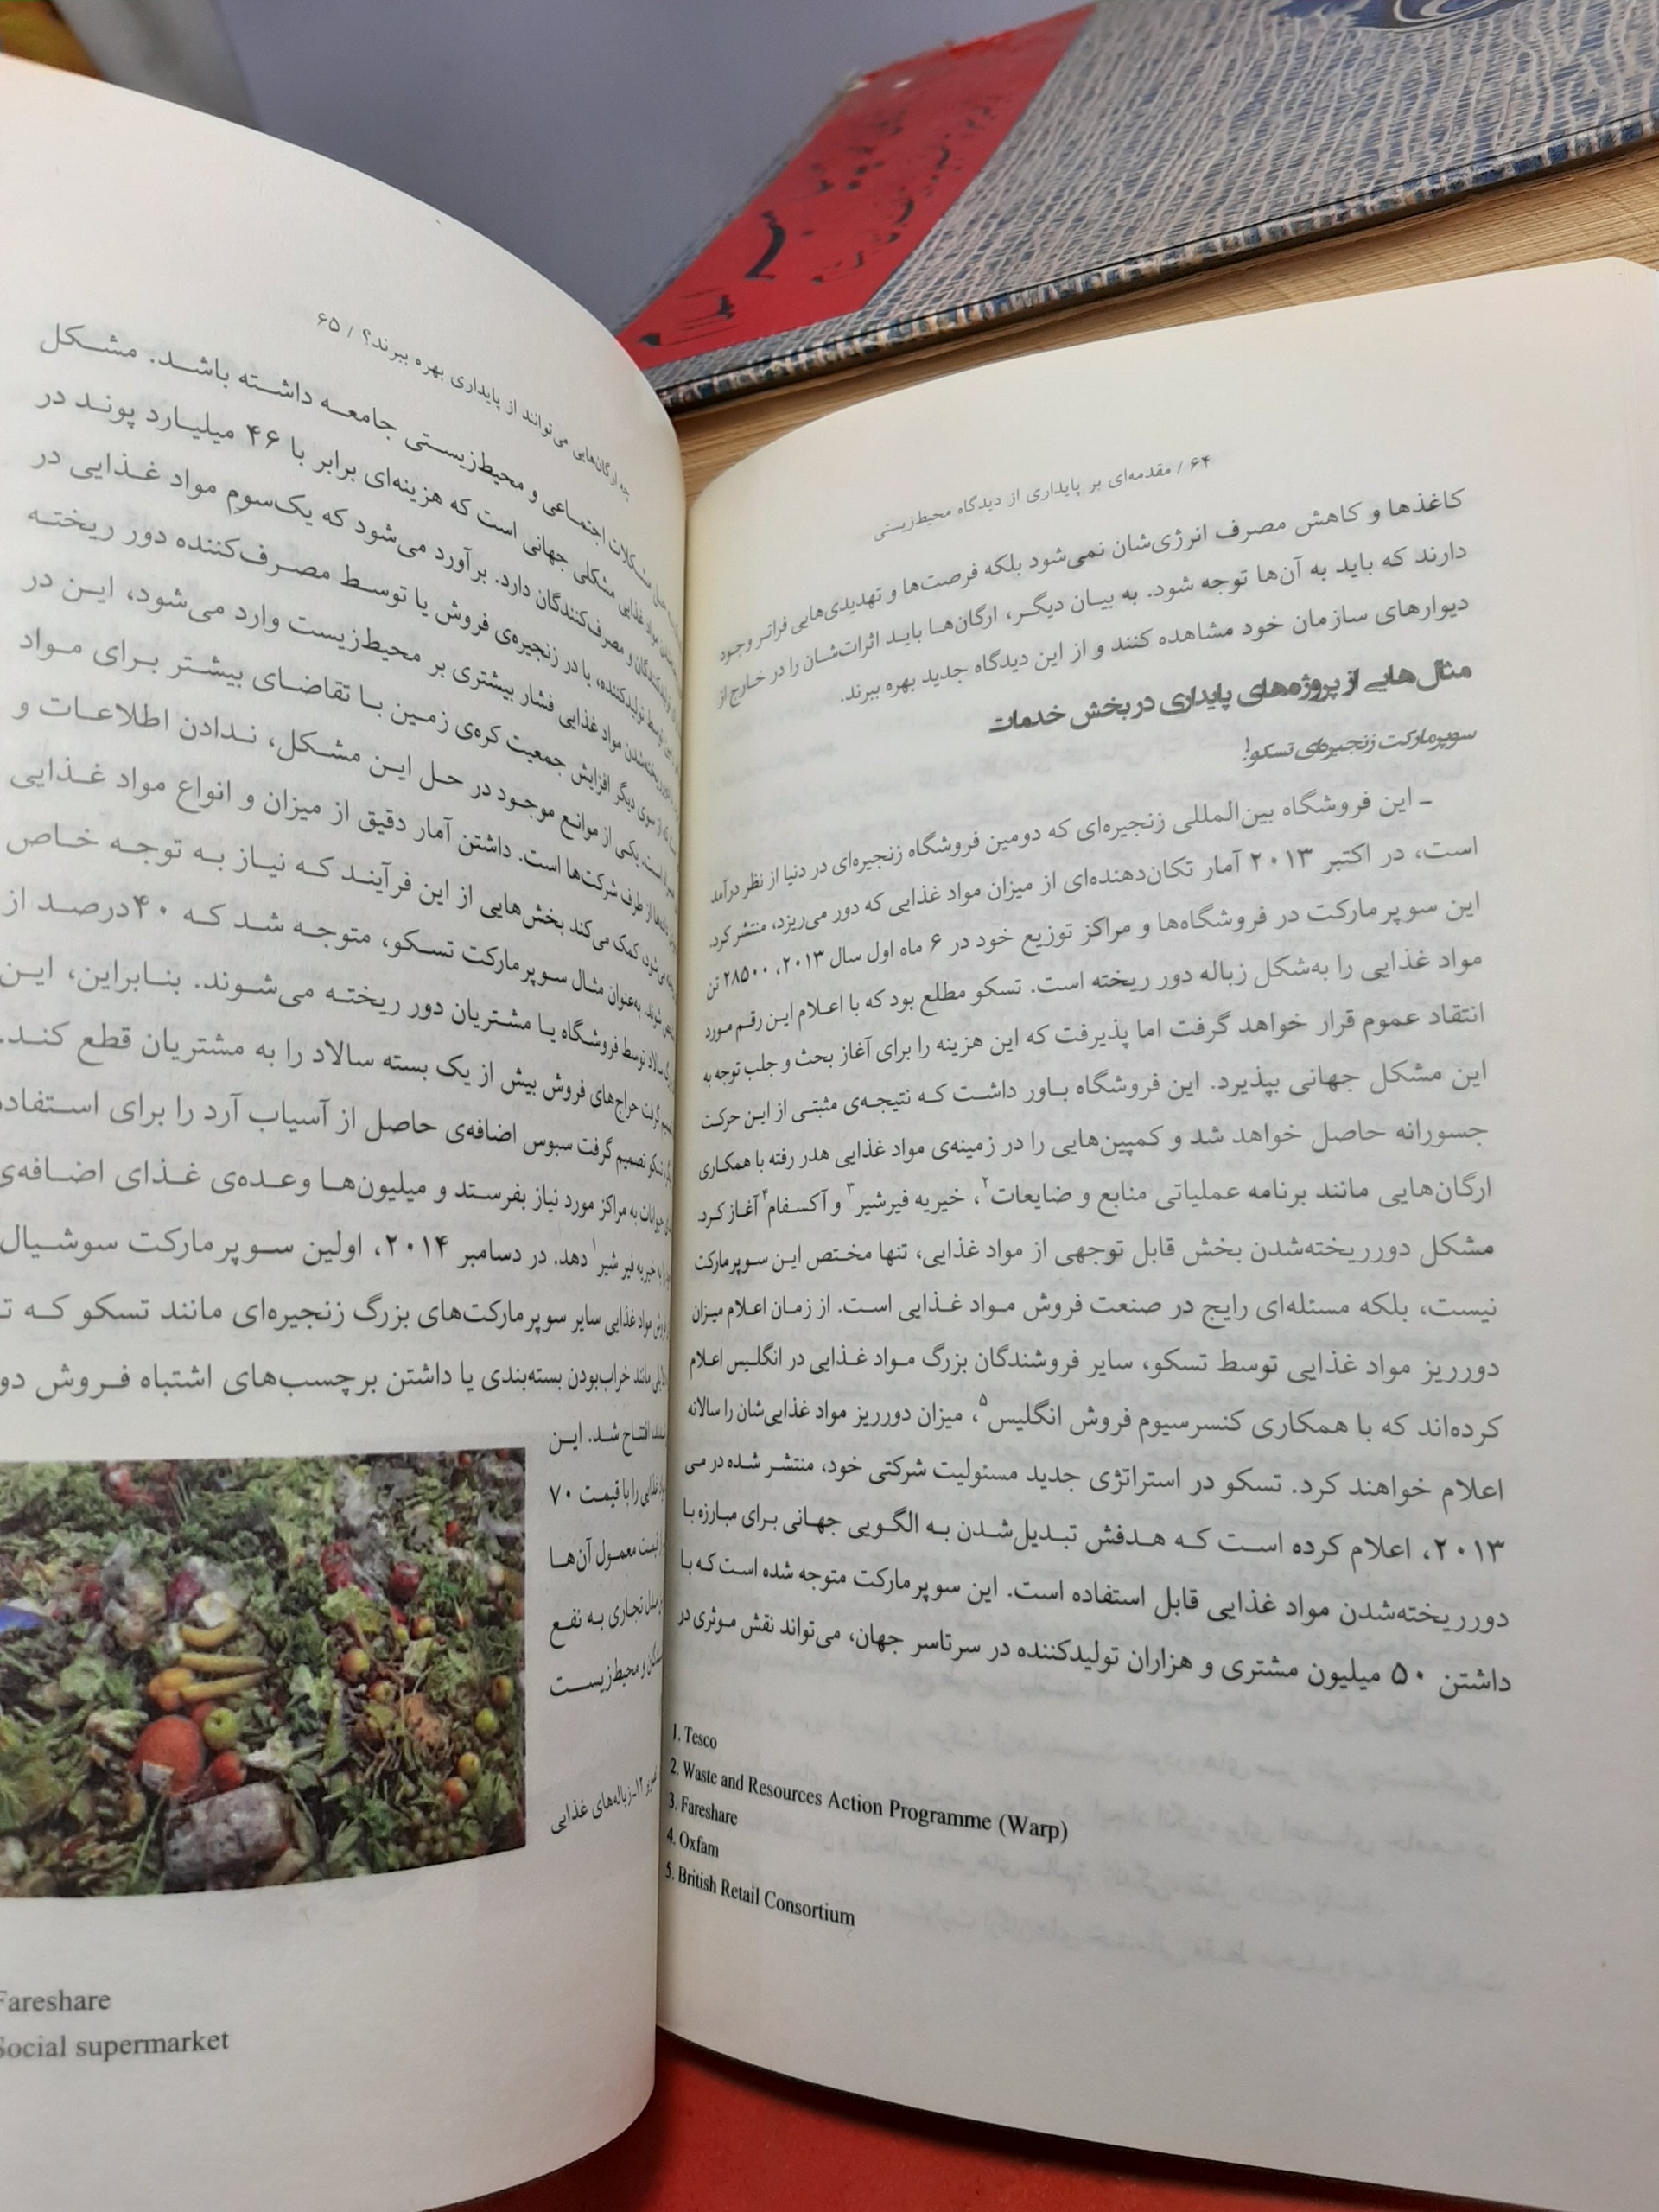 ۶۴ / مقدمه‌ای بر پایداری از دیدگاه محیط‌زیستی
کاغذها و کاهش مصرف انرژی‌شان نمی‌شود بلکه فرصت‌ها و تهدیدی‌هایی فراتر وجود
دارند که باید به آن‌ها توجه شود. به بیان دیگر، ارگان‌ها باید اثرات‌شان را در خارج از
دیوارهای سازمان خود مشاهده کنند و از این دیدگاه جدید بهره ببرند.
مثال‌هایی از پروژه‌های پایداری در بخش خدمات
سوپرمارکت زنجیره‌ای تسکو۱
ـ این فروشگاه بین‌المللی زنجیره‌ای که دومین فروشگاه زنجیره‌ای در دنیا از نظر درآمد
است، در اکتبر ۲۰۱۳ آمار تکان‌دهنده‌ای از میزان مواد غذایی که دور می‌ریزد، منتشر کرد.
این سوپرمارکت در فروشگاه‌ها و مراکز توزیع خود در ۶ ماه اول سال ۲۰۱۳، ۲۸۵۰۰ تن
مواد غذایی را به‌شکل زباله دور ریخته است. تسکو مطلع بود که با اعلام این رقم مورد
انتقاد عموم قرار خواهد گرفت اما پذیرفت که این هزینه را برای آغاز بحث و جلب توجه به
این مشکل جهانی بپذیرد. این فروشگاه باور داشت که نتیجه‌ی مثبتی از این حرکت
جسورانه حاصل خواهد شد و کمپین‌هایی را در زمینه‌ی مواد غذایی هدر رفته با همکاری
ارگان‌هایی مانند برنامه عملیاتی منابع و ضایعات۲، خیریه فیرشیر۳ و آکسفام۴ آغاز کرد.
مشکل دورریخته‌شدن بخش قابل توجهی از مواد غذایی، تنها مختص این سوپرمارکت
نیست، بلکه مسئله‌ای رایج در صنعت فروش مواد غذایی است. از زمان اعلام میزان
دورریز مواد غذایی توسط تسکو، سایر فروشندگان بزرگ مواد غذایی در انگلیس اعلام
کرده‌اند که با همکاری کنسرسیوم فروش انگلیس۵، میزان دورریز مواد غذایی‌شان را سالانه
اعلام خواهند کرد. تسکو در استراتژی جدید مسئولیت شرکتی خود، منتشر شده در می
۲۰۱۳، اعلام کرده است که هدفش تبدیل‌شدن به الگویی جهانی برای مبارزه با
دورریخته‌شدن مواد غذایی قابل استفاده است. این سوپرمارکت متوجه شده است که با
داشتن ۵۰ میلیون مشتری و هزاران تولیدکننده در سرتاسر جهان، می‌تواند نقش موثری در
1. Tesco
2. Waste and Resources Action Programme (Warp)
3. Fareshare
4. Oxfam
5. British Retail Consortium
چه ارگان‌هایی می‌توانند از پایداری بهره ببرند؟ / ۶۵
مشکلات اجتماعی و محیط‌زیستی جامعه داشته باشد. مشکل
مواد غذایی مشکلی جهانی است که هزینه‌ای برابر با ۴۶ میلیارد پوند در
و مصرف‌کنندگان دارد. برآورد می‌شود که یک‌سوم مواد غذایی در
توسط تولیدکننده، یا در زنجیره‌ی فروش یا توسط مصرف‌کننده دور ریخته
مواد غذایی فشار بیشتری بر محیط‌زیست وارد می‌شود، این در
از سوی دیگر افزایش جمعیت کره‌ی زمین با تقاضای بیشتر برای مواد
است. یکی از موانع موجود در حل این مشکل، ندادن اطلاعات و
از طرف شرکت‌ها است. داشتن آمار دقیق از میزان و انواع مواد غذایی
می‌شود، کمک می‌کند بخش‌هایی از این فرآیند که نیاز به توجه خاص
شوند. به‌عنوان مثال سوپرمارکت تسکو، متوجه شد که ۴۰درصد از
سالاد توسط فروشگاه یا مشتریان دور ریخته می‌شوند. بنابراین، این
گرفت حراج‌های فروش بیش از یک بسته سالاد را به مشتریان قطع کند.
تسکو تصمیم گرفت سبوس اضافه‌ی حاصل از آسیاب آرد را برای استفاده
حیوانات به مراکز مورد نیاز بفرستد و میلیون‌ها وعده‌ی غذای اضافه‌ی
به خیریه فیر شیر۱ دهد. در دسامبر ۲۰۱۴، اولین سوپرمارکت سوشیال
مواد غذایی سایر سوپرمارکت‌های بزرگ زنجیره‌ای مانند تسکو که
مانند خراب‌بودن بسته‌بندی یا داشتن برچسب‌های اشتباه فروش
افتتاح شد. این
غذایی را با قیمت ۷۰
قیمت معمول آن‌ها
تجاری به نفع
و محیط‌زیست
۱۲ـ زباله‌های غذایی
Fareshare
Social supermarket